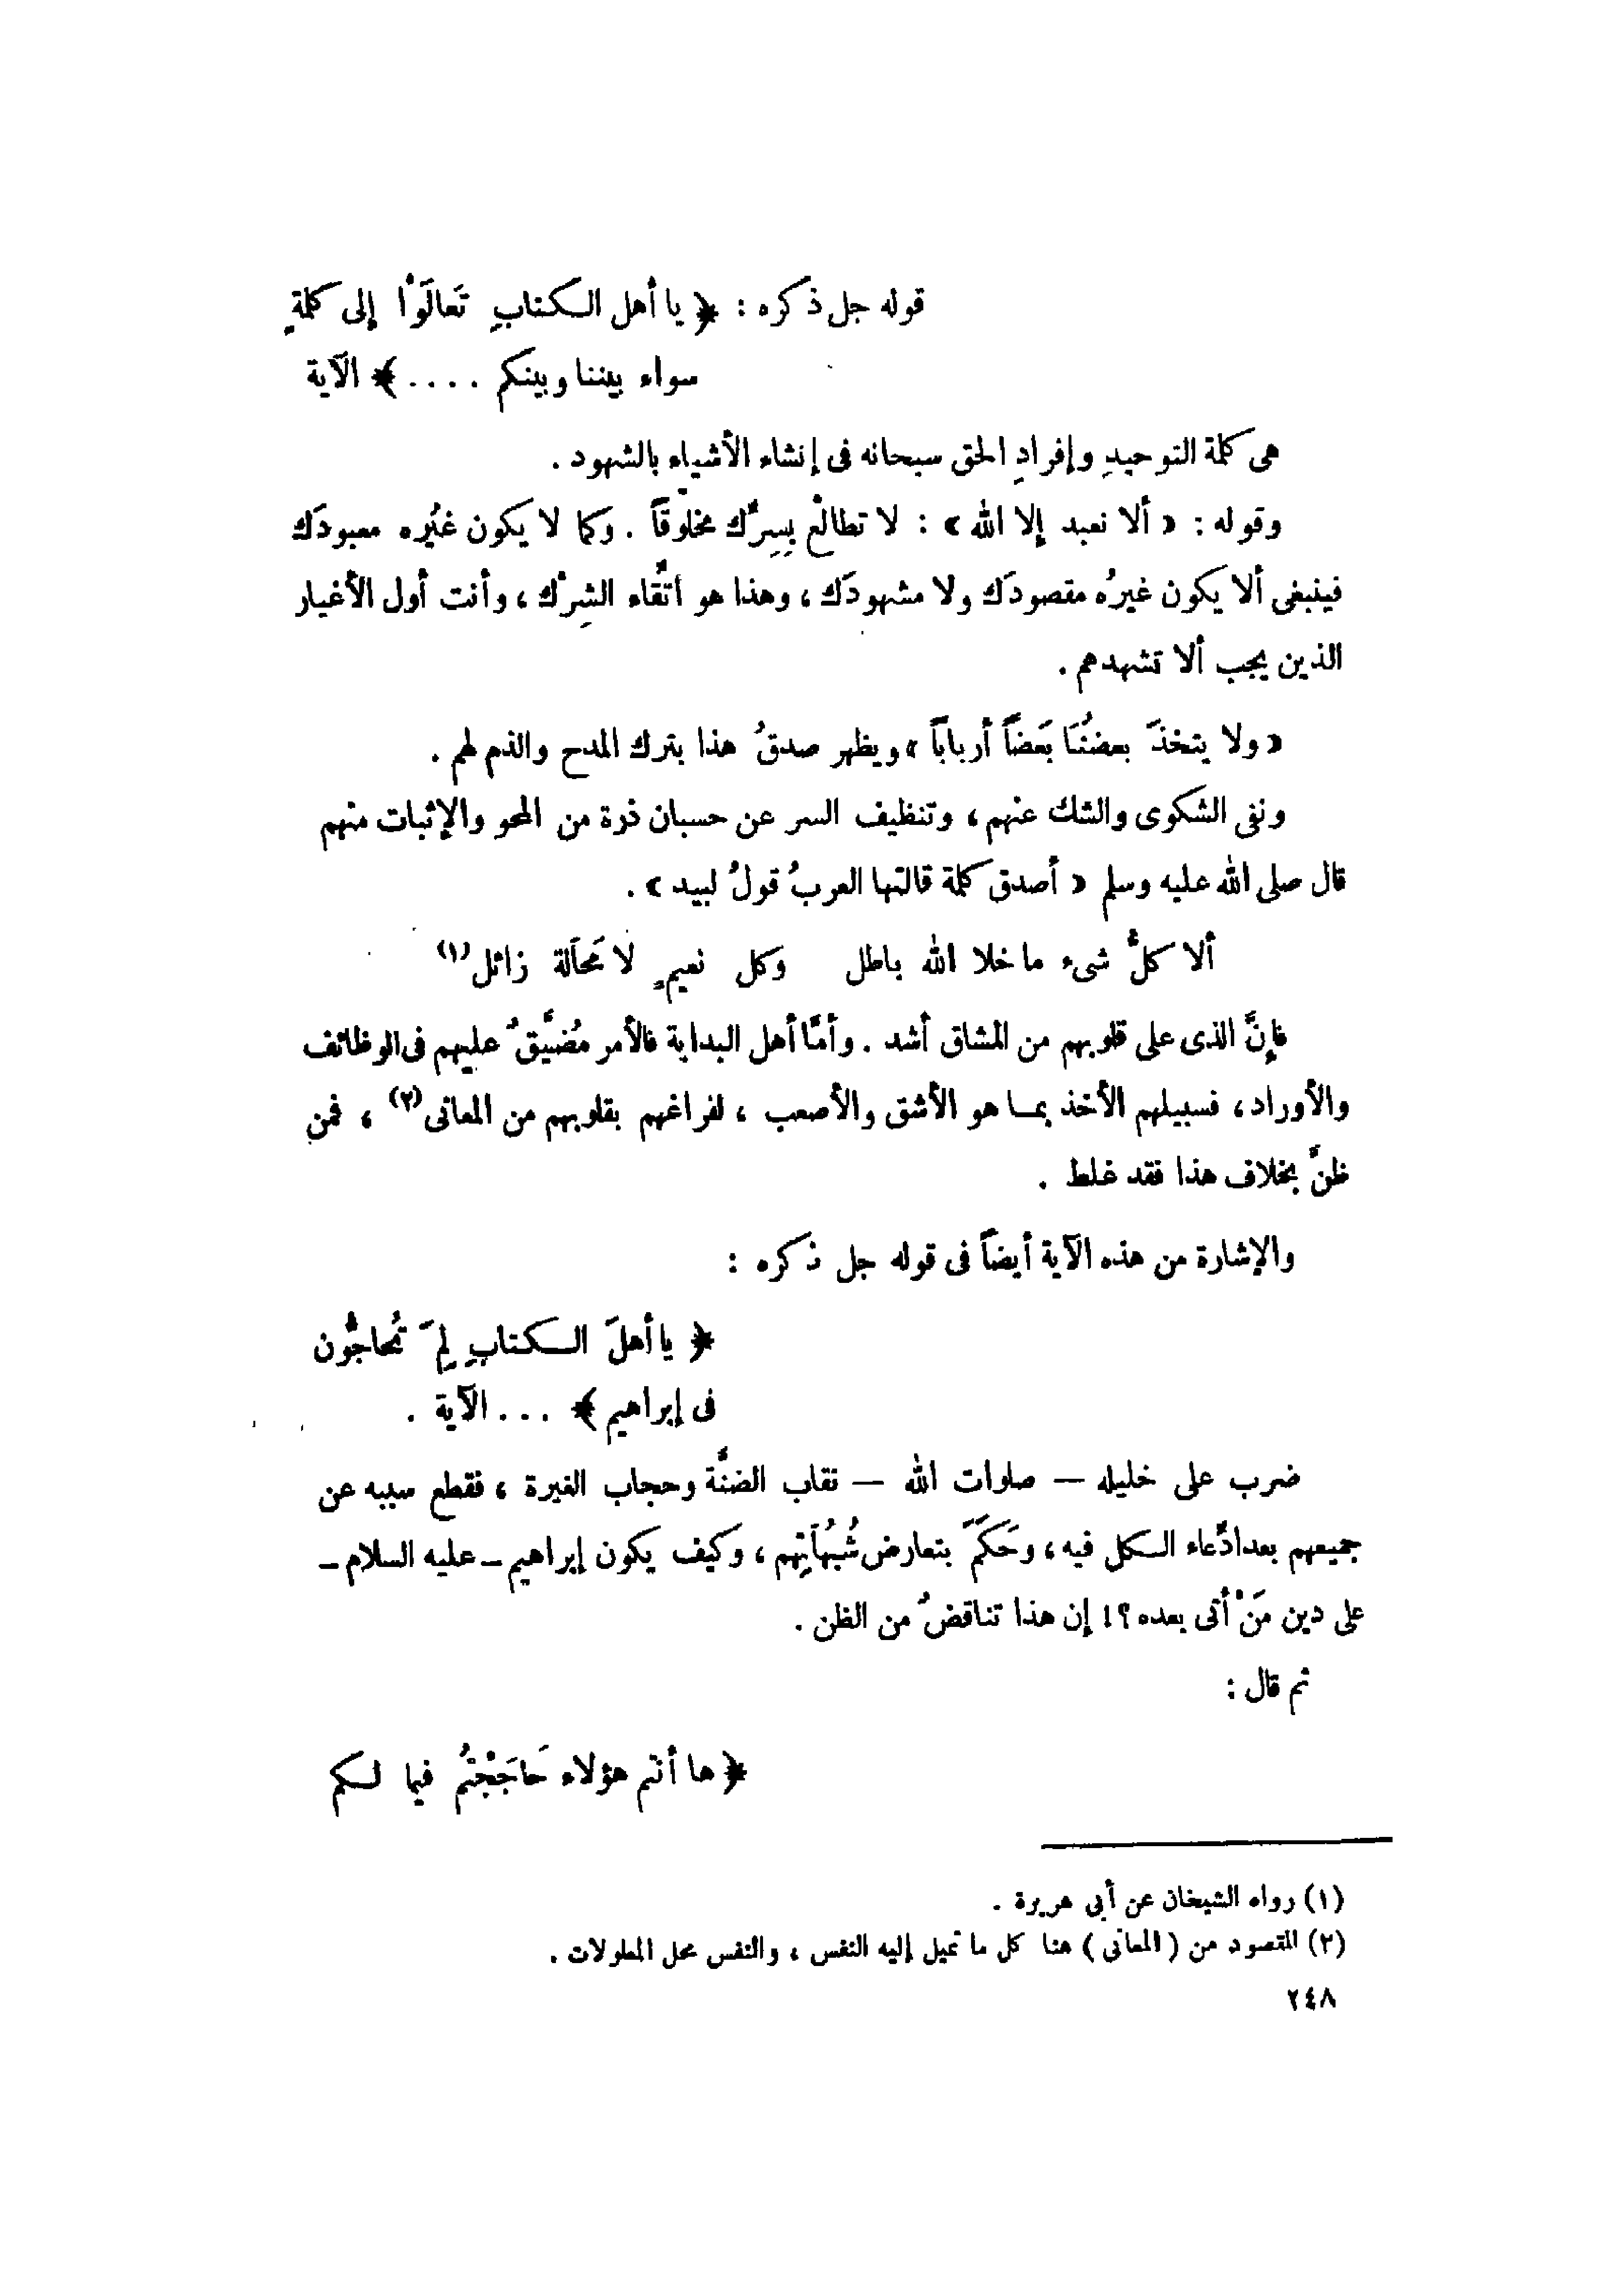 قوله جل ذكره : ﴿ يا أهل الكتابِ تَعالَوْا إلى كلمةٍ
سواء بيننا وبينكم . . . . ﴾ الآية
هى كلمة التوحيدِ وإفرادِ الحق سبحانه فى إنشاء الأشياء بالشهود .
وقوله : « ألا نعبد إلا الله » : لا تطالعْ بِسِرِّك مخلوقاً . وكما لا يكون غيُره معبودَك
فينبغى ألا يكون غيرُه مقصودَك ولا مشهودَك ، وهذا هو اتِّقاء الشِرْك ، وأنت أول الأغيار
الذين يجب ألا تشهدهم .
« ولا يتخذَ بعضنُنَا بَعضاً أرباباً » ويظهر صدقُ هذا بترك المدح والذم لهم .
ونفى الشكوى والشك عنهم ، وتنظيف السر عن حسبان ذرة من المحو والإثبات منهم
قال صلى الله عليه وسلم « أصدق كلمة قالتها العربُ قولُ لبيد » .
ألا كلُّ شىء ما خلا الله باطل وكل نعيمٍ لا مَحاَلة زائل (١)
فإنَّ الذى على قلوبهم من المشاق أشد . وأمَّا أهل البداية فالأمر مُضيَّقٌ عليهم فى الوظائف
والأوراد ، فسبيلهم الأخذ بما هو الأشق والأصعب ، لفراغهم بقلوبهم من المعانى (٢) ، فمن
ظنَّ بخلاف هذا فقد غلط .
والإشارة من هذه الآية أيضاً فى قوله جل ذكره :
﴿ يا أهلَ الكتابِ لِمَ تُحاجُّون
فى إبراهيم ﴾ . . . الآية .
ضرب على خليله — صلوات الله — نقاب الضنَّة وحجاب الغيرة ، فقطع سببه عن
جميعهم بعد ادِّعاء الكل فيه ، وحَكَمَ بتعارض شُبُهاَتِهم ، وكيف يكون إبراهيم – عليه السلام –
على دين مَنْ أتى بعده ؟! إن هذا تناقضٌ من الظن .
ثم قال :
﴿ ها أنتم هؤلاء حَاجَجْتُم فيما لكم
(١) رواه الشيخان عن أبى هريرة .
(٢) المقصود من ( المعانى ) هنا كل ما تميل إليه النفس ، والنفس محل المعلولات .
٢٤٨